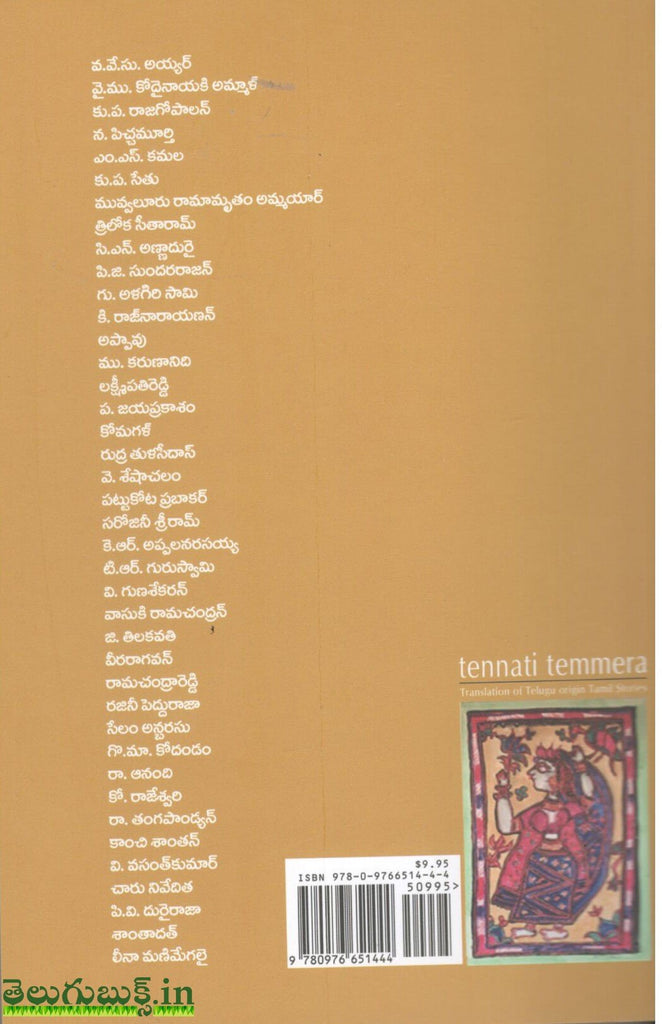 వ.వే.సు. అయ్యర్
వై.ము. కోదైనాయకి అమ్మాళ్
కు.ప. రాజగోపాలన్
న. పిచ్చమూర్తి
ఎం.ఎస్. కమల
కు.ప. సేతు
మువ్వలూరు రామామృతం అమ్మయార్
త్రిలోక సీతారామ్
సి.ఎన్. అణ్ణాదురై
పి.జి. సుందరరాజన్
గు. అళగిరి సామి
కి. రాజ్‌నారాయణన్
అప్పావు
ము. కరుణానిది
లక్ష్మీపతిరెడ్డి
ప. జయప్రకాశం
కోమగళ్
రుద్ర తుళసీదాస్
వె. శేషాచలం
పట్టుకోట ప్రబాకర్
సరోజినీ శ్రీరామ్
కె.ఆర్. అప్పలనరసయ్య
టి.ఆర్. గురుస్వామి
వి. గుణశేకరన్
వాసుకి రామచంద్రన్
జి. తిలకవతి
వీరరాగవన్
రామచంద్రారెడ్డి
రజినీ పెద్దురాజా
సేలం అన్బరసు
గొ.మా. కోదండం
రా. ఆనంది
కో. రాజేశ్వరి
రా. తంగపాండ్యన్
కాంచి శాంతన్
వి. వసంత్‌కుమార్
చారు నివేదిత
పి.వి. దురైరాజా
శాంతాదత్
లీనా మణిమేగలై
tennati temmera
Translation of Telugu origin Tamil Stories
$9.95
ISBN 978-0-9766514-4-4
50995>
9 780976 651444
తెలుగుబుక్స్.in